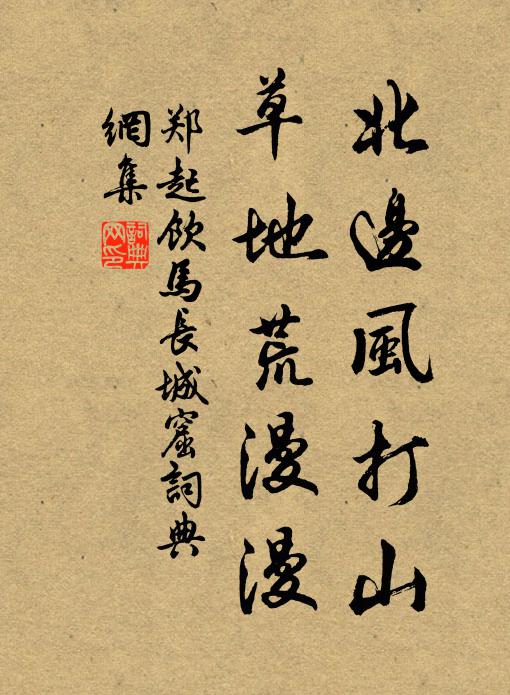 北邊風打山
草地荒漫漫
郑起飲馬長城窟詞典
網集
詞典网印